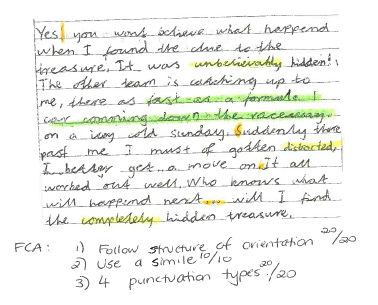 Yes, you wont believe what happend
when I found the clue to the
treasure. It was unbelievably hidden!
The other team is catching up to
me, there as fast as a formula 1
car comming down the raceway
on a icey cold sunday. Suddenly there
past me I must of gotten distracted,
I better get a move on. It all
worked out well. Who knows what
will happend next... will I find
the completely hidden treasure.
FCA: 1) Follow structure of orientation 20/20
2) Use a simile 10/10
3) 4 punctuation types 20/20